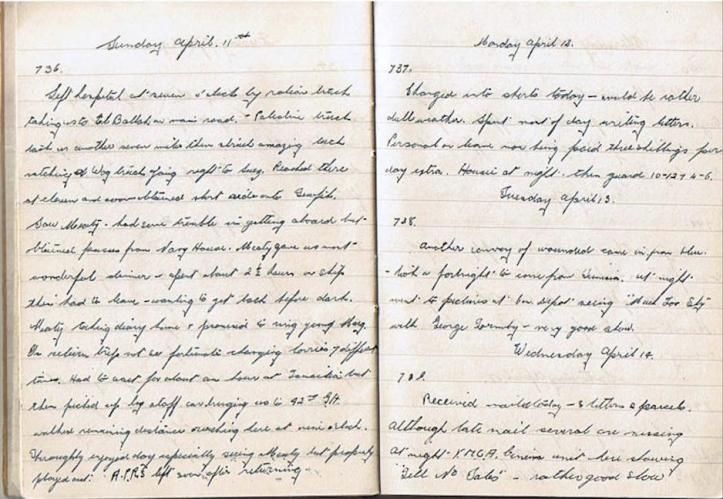 Sunday April. 11th
736.
Left hospital at seven o'clock by ration truck
taking us to El Ballah on main road. - Palestine truck
took us another seven miles then struck amazing luck
catching a Wog truck going right to Suez. Reached there
at eleven and soon obtained short ride onto
Saw Meaty - had some trouble in getting aboard but
obtained passes from Navy House. Meaty gave us most
wonderful dinner - spent about 2½ hours on ship
then had to leave - wanting to get back before dark.
Meaty taking diary home & promised to ring young Marg.
On return trip not so fortunate changing lorries 7 different
times. Had to wait for about an hour at but
then picked up by staff car bringing us to 92nd G.H.
walked remaining distance reaching here at nine o'clock.
Throughly enjoyed day especially seeing Meaty but properly
played out. left soon after returning
Monday April 12.
737.
Changed into shorts today - could be rather
dull weather. Spent most of day writing letters.
Personal on leave now being paid three shillings per
day extra. Housie at night. then guard 10-12 & 4-6.
Tuesday April 13.
738.
Another convoy of wounded came in from blue.
- took a fortnight to come from Tunisia. at night
went to pictures at Depot seeing "Much Too Shy"
with George Formby - very good show.
Wednesday April 14.
739.
Received mail today - 3 letters & parcels.
although late mail several are missing
at night Y.M.C.A. Cinema unit here showing
"Tell No Tales" - rather good show